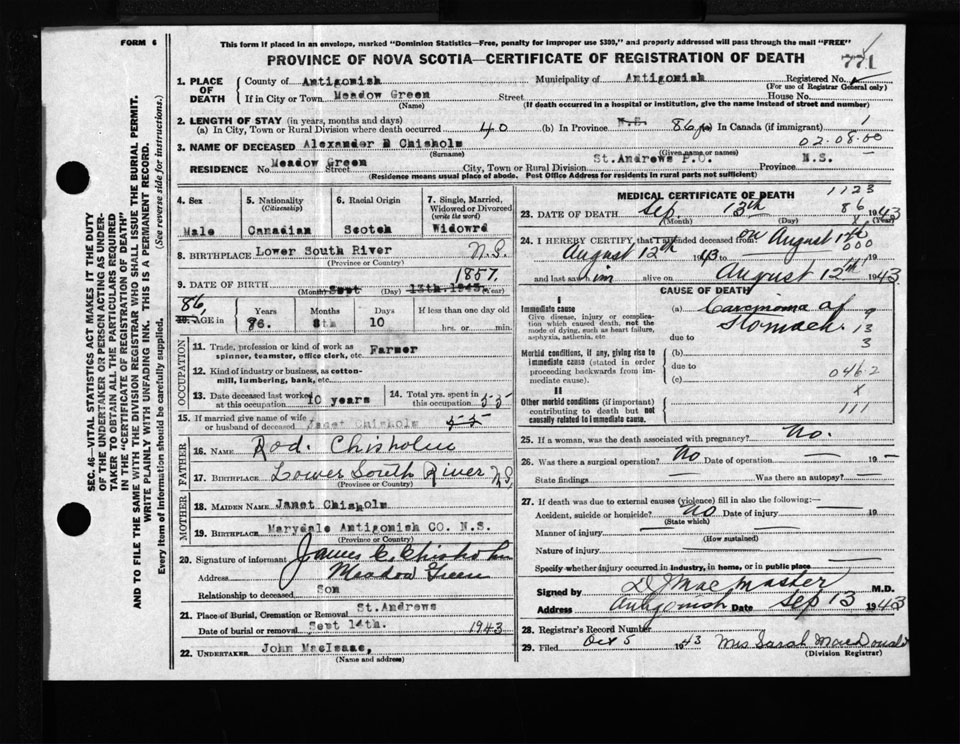 FORM 6
This form if placed in an envelope, marked "Dominion Statistics—Free, penalty for improper use $300," and properly addressed will pass through the mail "FREE"
PROVINCE OF NOVA SCOTIA—CERTIFICATE OF REGISTRATION OF DEATH
771
1. PLACE OF DEATH
County of Antigonish Municipality of Antigonish Registered No.
(For use of Registrar General only)
If in City or Town Meadow Green Street House No.
(Name) (If death occurred in a hospital or institution, give the name instead of street and number)
2. LENGTH OF STAY (in years, months and days)
(a) In City, Town or Rural Division where death occurred 40 (b) In Province N.S. 86 In Canada (if immigrant) 1
02.08.00
3. NAME OF DECEASED Alexander D Chisholm
(Surname) (Given name or names)
RESIDENCE No. Meadow Green Street City, Town or Rural Division St.Andrews P.O. Province N.S.
(Residence means usual place of abode. Post Office Address for residents in rural parts not sufficient)
4. Sex
Male
5. Nationality
(Citizenship)
Canadian
6. Racial Origin
Scotch
7. Single, Married, Widowed or Divorced
(write the word)
Widowrd
8. BIRTHPLACE Lower South River N.S.
(Province or Country)
1857.
9. DATE OF BIRTH (Month) Sept (Day) 13th.1943.
86,
10. AGE in Years Months Days If less than one day
76. 8th 10 hrs. or min.
OCCUPATION
11. Trade, profession or kind of work as spinner, teamster, office clerk, etc. Farmer
12. Kind of industry or business, as cotton-mill, lumbering, bank, etc.
13. Date deceased last worked at this occupation 10 years
14. Total yrs. spent in this occupation 55
15. If married give name of wife or husband of deceased Janet Chisholm 55
FATHER
16. NAME Rod. Chisholm
17. BIRTHPLACE Lower South River N.S.
(Province or Country)
MOTHER
18. MAIDEN NAME Janet Chisholm
19. BIRTHPLACE Marydale Antigonish CO. N.S.
(Province or Country)
20. Signature of informant James C. Chisholm
Address Meadow Green
Relationship to deceased Son
21. Place of Burial, Cremation or Removal St.Andrews
Date of burial or removal Sept 14th. 1943
22. UNDERTAKER John MacIsaac,
(Name and address)
MEDICAL CERTIFICATE OF DEATH
1123
23. DATE OF DEATH Sep. 13th 1943
86
(Month) (Day) (Year)
24. I HEREBY CERTIFY, that I attended deceased from on August 1st
000
August 12th 1943 to 19
and last saw him alive on August 12th 1943
CAUSE OF DEATH
I
Immediate cause
Give disease, injury or complication which caused death, not the mode of dying, such as heart failure, asphyxia, asthenia, etc
(a) Carcinoma of Stomach
13
3
due to
Morbid conditions, if any, giving rise to immediate cause (stated in order proceeding backwards from immediate cause).
(b)
due to
(c)
046.2
x
II
Other morbid conditions (if important) contributing to death but not causally related to immediate cause.
111
25. If a woman, was the death associated with pregnancy? no.
26. Was there a surgical operation? No Date of operation 19
State findings Was there an autopsy?
27. If death was due to external causes (violence) fill in also the following:—
Accident, suicide or homicide? No Date of injury 19
(State which)
Manner of injury
(How sustained)
Nature of injury
Specify whether injury occurred in industry, in home, or in public place
Signed by D.J. MacMaster M.D.
Address Antigonish Date Sep 13 1943
28. Registrar's Record Number
29. Filed Oct 5 1943 Mrs Sarah MacDonald
(Division Registrar)
SEC. 46—VITAL STATISTICS ACT MAKES IT THE DUTY
OF THE UNDERTAKER OR PERSON ACTING AS UNDERTAKER TO OBTAIN ALL THE PARTICULARS REQUIRED
IN THE "CERTIFICATE OF REGISTRATION OF DEATH"
AND TO FILE THE SAME WITH THE DIVISION REGISTRAR WHO SHALL ISSUE THE BURIAL PERMIT.
WRITE PLAINLY WITH UNFADING INK. THIS IS A PERMANENT RECORD.
Every item of information should be carefully supplied. (See reverse side for instructions.)